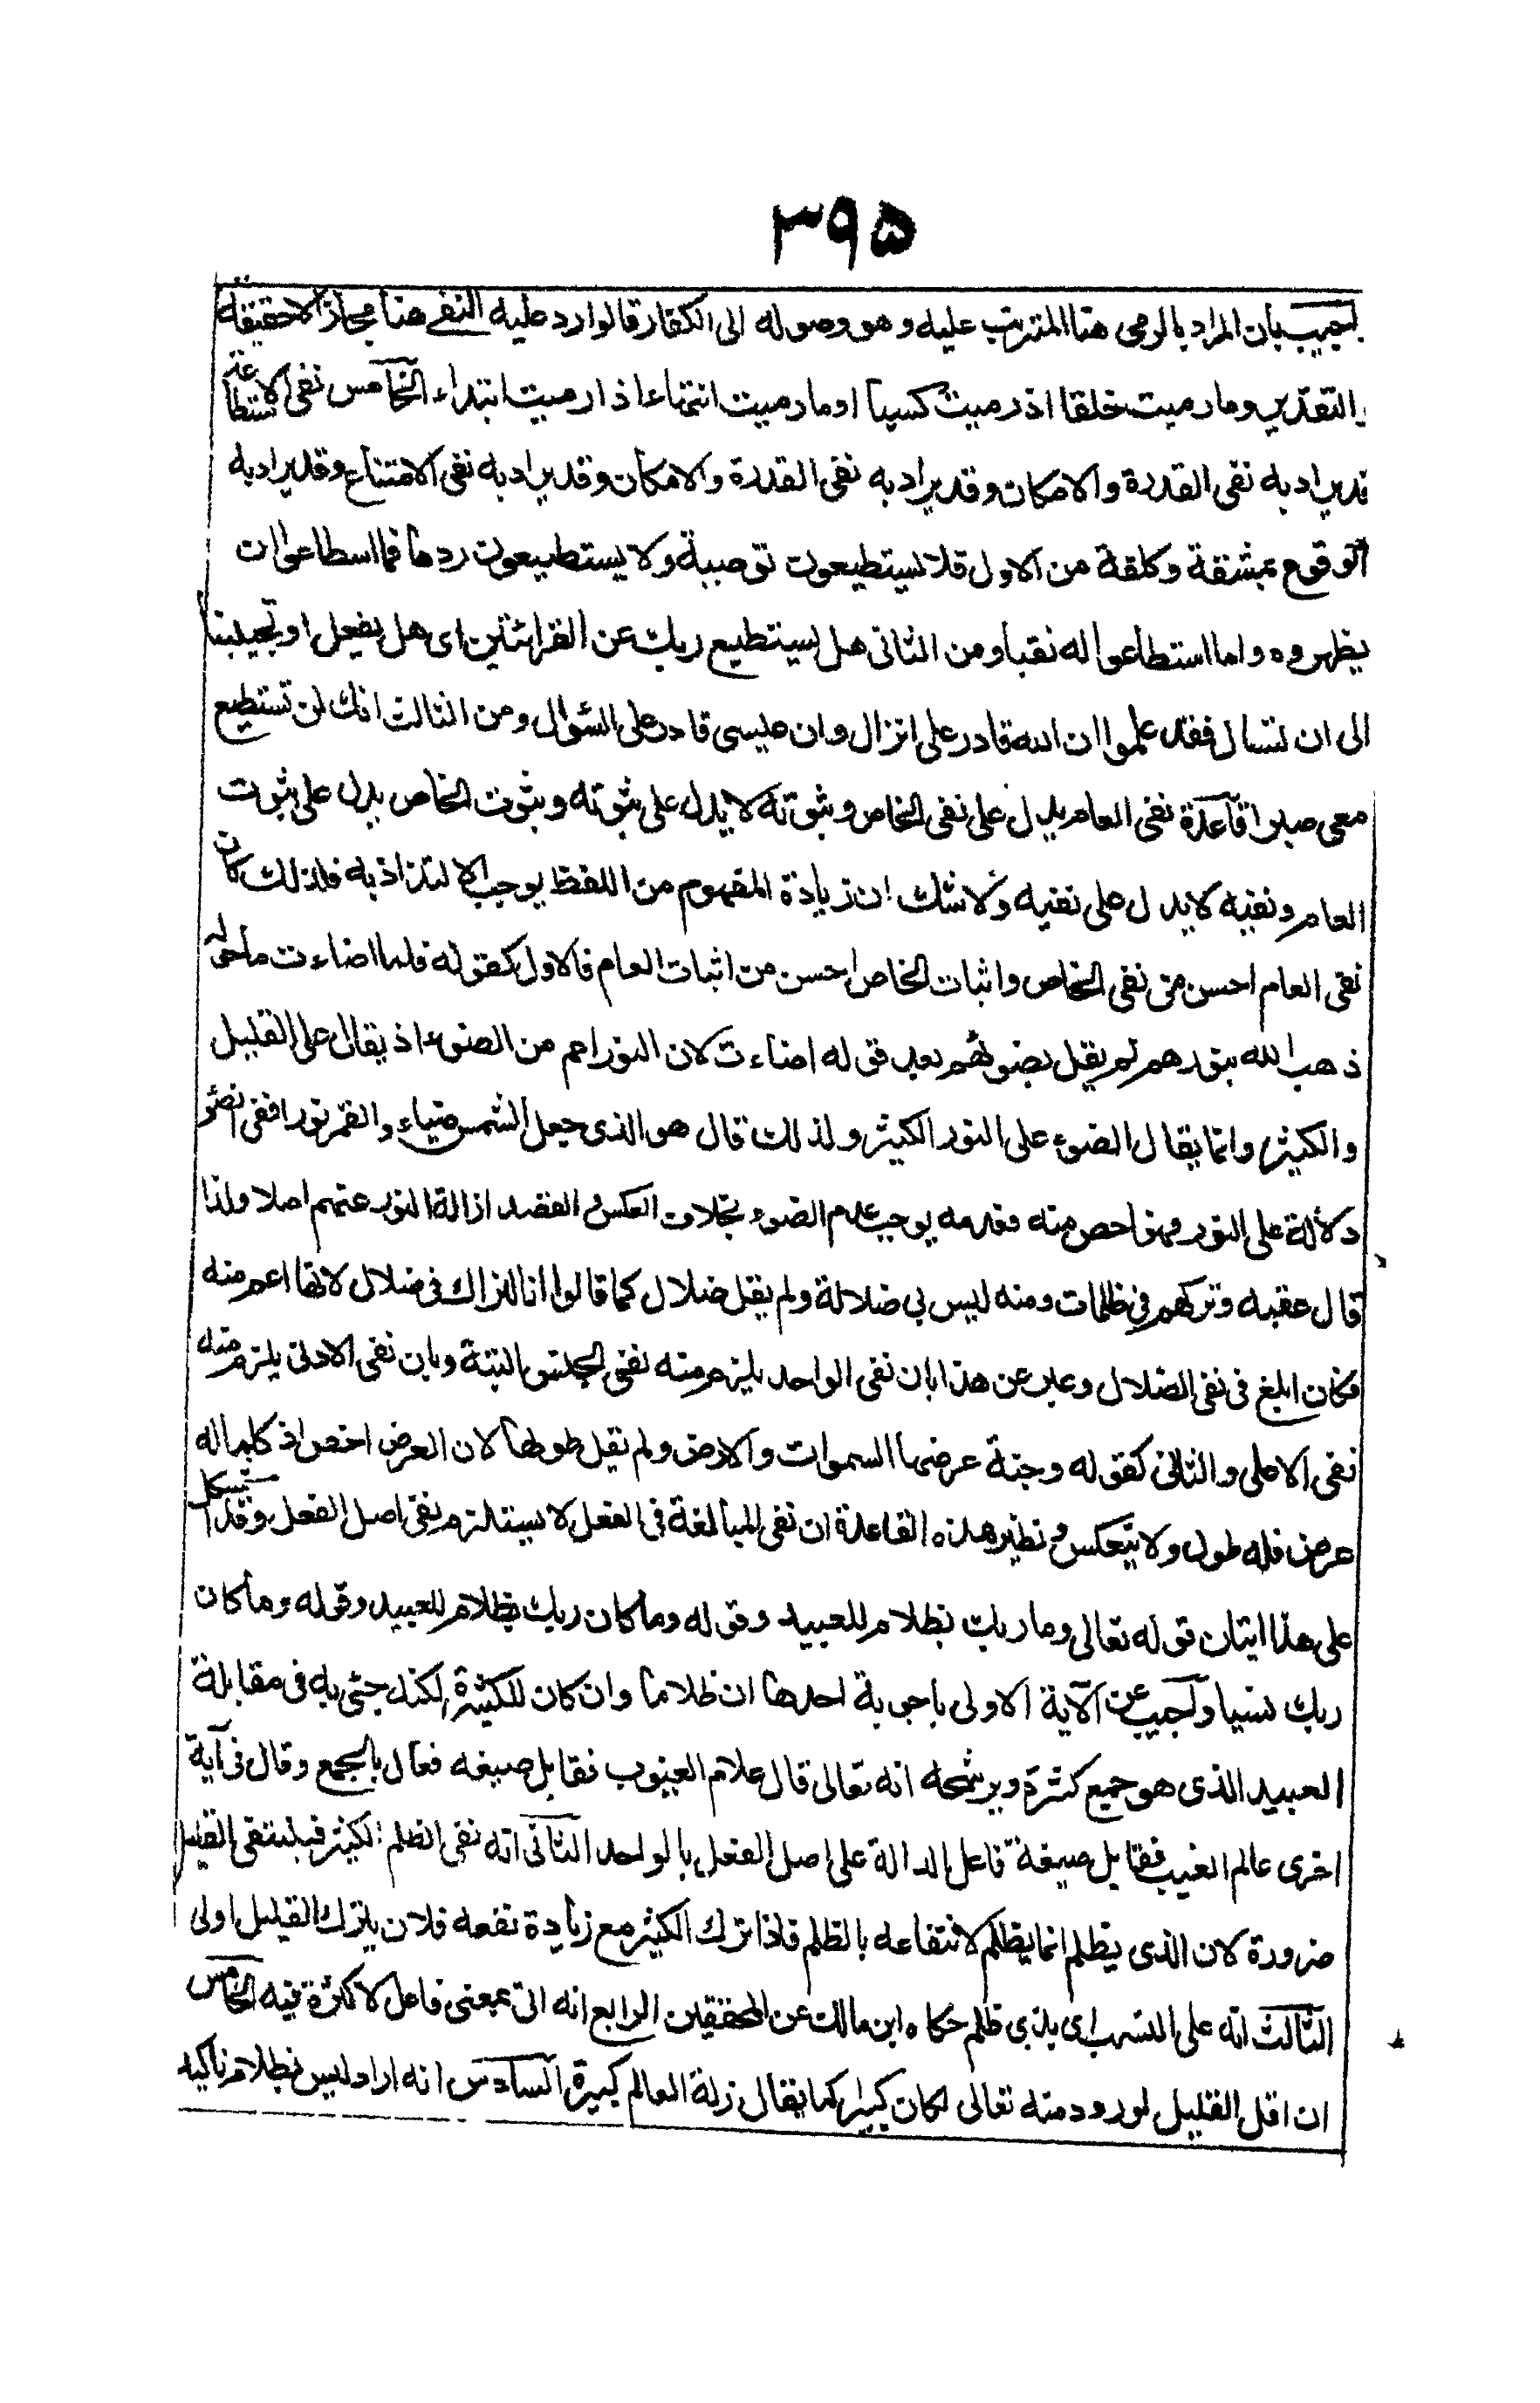 ٣٩٥
اجیب بان المراد بالرمی هنا المترتب علیه وهو وصوله الی الکفار قالوارد علیه النفی هنا مجاز الاحقیقة
والتقدیر وما رمیت خلقا اذ رمیت کسبا او ما رمیت انتهاء اذ ا رمیت ابتداء الخامس نفی الاستطاعة
قدیراد به نفی القدرة والامکان وقد یراد به نفی القدرة والامکان وقد یراد به نفی الامتناع وقدیراد به
الوقوع بمشقة وکلفة من الاول قلا یستطیعون توصیة ولا یستطیعون ردها فما اسطاعوا ان
یظهروه وما استطاعوا له نقبا ومن الثانی هل یستطیع ربك عن القرائتین ای هل یفعل او تجیبنا
الی ان تسال فقد علموا ان الله قادر علی انزال وان عیسی قادر علی السؤال ومن الثالث انك لن تستطیع
معی صبرا قاعدة نفی العام یدل علی نفی الخاص وثبوته لا یدل علی ثبوته وثبوت الخاص یدل علی ثبوت
العام ونفیه لایدل علی نفیه ولاشك ان زیادة المفهوم من اللفظ یوجب الالتذاذ به فلذلك کان
نفی العام احسن من نفی الخاص واثبات الخاص احسن من اثبات العام فالاول کقوله فلما اضاءت ماحوله
ذهب الله بنورهم لم یقل بضوئهم بعد قوله اضاءت لان النور اعم من الضوء اذ یقال علی القلیل
والکثیر وانما یقال الضوء علی النور الکثیر ولذلك قال هو الذی جعل الشمس ضیاء والقمر نورا ففی الضوء
دلالة علی النور فهو اخص منه فعدمه یوجب عدم الضوء بخلاف العکس والقصد ازالة النور عنهم اصلا ولذا
قال عقبه وترکهم فی ظلمات ومنه لیس بی ضلالة ولم یقل ضلال کما قالوا انا لنراك فی ضلال لانها اعم منه
فکان ابلغ فی نفی الضلال وعبر عن هذا بان نفی الواحد یلزم منه نفی الجنس البتة وبان نفی الادنی یلزم منه
نفی الاعلی والثانی کقوله وجنة عرضها السموات والارض ولم یقل طولها لان العرض اخص اذ کلما له
عرض فله طول ولا ینعکس ونظیر هذه القاعدة ان نفی المبالغة فی الفعل لا یستلزم نفی اصل الفعل وقد اشکل
علی هذا ایتان قوله تعالی وما ربك بظلام للعبید وقوله وما کان ربك بظلام للعبید وقوله وما کان
ربك نسیا واجیب عن الآیة الاولی باجوبة احدها ان ظلاما وان کان للکثرة لکنه جئ به فی مقابلة
العبید الذی هو جمع کثرة ویرشحه انه تعالی قال علام الغیوب فقابل صیغه فعال بالجمع وقال فی آیة
اخری عالم الغیب فقابل صیغة فاعل الدالة علی اصل الفعل بالواحد الثانی انه نفی الظلم الکثیر فینتفی القلیل
ضرورة لان الذی یظلم انما یظلم لانتفاعه بالظلم فاذا ترك الکثیر مع زیادة نفعه فلان یترك القلیل اولی
الثالث انه علی النسب ای بذی ظلم حکاه ابن مالك عن المحققین الرابع انه اتی بمعنی فاعل لا کثرة فیه الخامس
ان اقل القلیل لو ورد منه تعالی لکان کبیرا کما یقال زلة العالم کبیرة السادس انه اراد لیس بظلام تاکید